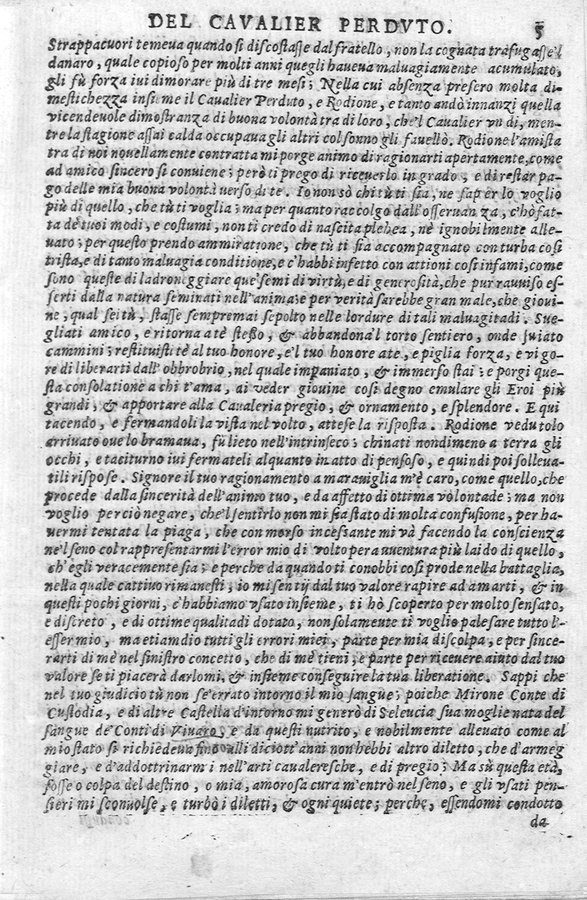 DEL CAVALIER PERDVTO. 5
Strappacuori temeua quando si discostasse dal fratello, non la cognata trafugasse'l
danaro, quale copioso per molti anni quegli haueua maluagiamente acumulato,
gli fù forza iui dimorare più di tre mesi; Nella cui absenza presero molta di-
mestichezza insieme il Caualier Perduto, e Rodione, e tanto andò innanzi quella
vicendeuole dimostranza di buona volontà tra di loro, che'l Caualier vn dì, men-
tre la stagione assai calda occupaua gli altri col sonno gli fauellò. Rodione l'amistà
tra di noi nouellamente contratta mi porge animo di ragionarti apertamente, come
ad amico sincero si conuiene; però ti prego di riceuerlo in grado, e di restar pa-
go delle mia buona volontà verso di te. Io non sò chi tù ti sia, ne saper lo voglio
più di quello, che tù ti voglia; ma per quanto raccolgo dall'osseruanza, c'hò fat-
ta de tuoi modi, e costumi, non ti credo di nascita plebea, nè ignobilmente alle-
uato; per questo prendo ammiratione, che tù ti sia accompagnato con turba così
trista, e di tanto maluagia conditione, e c'habbi infetto con attioni così infami, come
sono queste di ladroneggiare que'semi di virtù, e di generosità, che pur rauuiso es-
serti dalla natura seminati nell'anima; e per verità sarebbe gran male, che gioui-
ne, qual sei tù, stasse sempremai sepolto nelle lordure di tali maluagitadi. Sue-
gliati amico, e ritorna a tè stesso, & abbandona'l torto sentiero, onde suiato
cammini; restituisti tè al tuo honore, e'l tuo honore a te, e piglia forza, e vigo-
re di liberarti dall'obbrobrio, nel quale impaniato, & immerso stai; e porgi que-
sta consolatione a chi t'ama, ai veder giouine così degno emulare gli Eroi più
grandi, & apportare alla Caualeria pregio, & ornamento, e splendore. E qui
tacendo, e fermandoli la vista nel volto, attese la risposta. Rodione vedutolo
arriuato oue lo bramaua, fù lieto nell'intrinseco; chinati nondimeno a terra gli
occhi, e taciturno iui fermateli alquanto in atto di pensoso, e quindi poi solleua-
tili rispose. Signore il tuo ragionamento a marauiglia m'è caro, come quello, che
procede dalla sincerità dell'animo tuo, e da affetto di ottima volontade; ma non
voglio perciò negare, che'l sentirlo non mi sia stato di molta confusione, per ha-
uermi tentata la piaga, che con morso incessante mi và facendo la conscienza
ne'l seno col rappresentarmi l'error mio di volto per auuentura più laido di quello,
ch'egli veracemente sia; e perche da quando ti conobbi così prode nella battaglia,
nella quale cattiuo rimanesti, io mi sentij dal tuo valore rapire ad amarti, & in
questi pochi giorni, c'habbiamo vsato insieme, ti hò scoperto per molto sensato,
e discreto, e di ottime qualitadi dotato, non solamente ti voglio palesare tutto l'
esser mio, ma etiamdio tutti gli errori miei, parte per mia discolpa, e per since-
rarti di mè nel sinistro concetto, che di mè tieni; e parte per riceuere aiuto dal tuo
valore se ti piacerà darlomi, & insieme conseguire la tua liberatione. Sappi che
nel tuo giudicio tù non se'errato intorno il mio sangue; poiche Mirone Conte di
Custodia, e di altre Castella d'intorno mi generò di Seleucia sua moglie nata del
sangue de'Conti di Viuaro; e da questi nutrito, e nobilmente alleuato come al
mio stato si richiedeua fino alli diciott'anni non hebbi altro diletto, che d'armeg
giare, e d'addottrinarmi nell'arti caualeresche, e di pregio; Ma sù questa età,
fosse o colpa del destino, o mia, amorosa cura m'entrò nel seno, e gli vsati pen-
sieri mi sconuolse, e turbò i diletti, & ogni quiete; perche, essendomi condotto
da